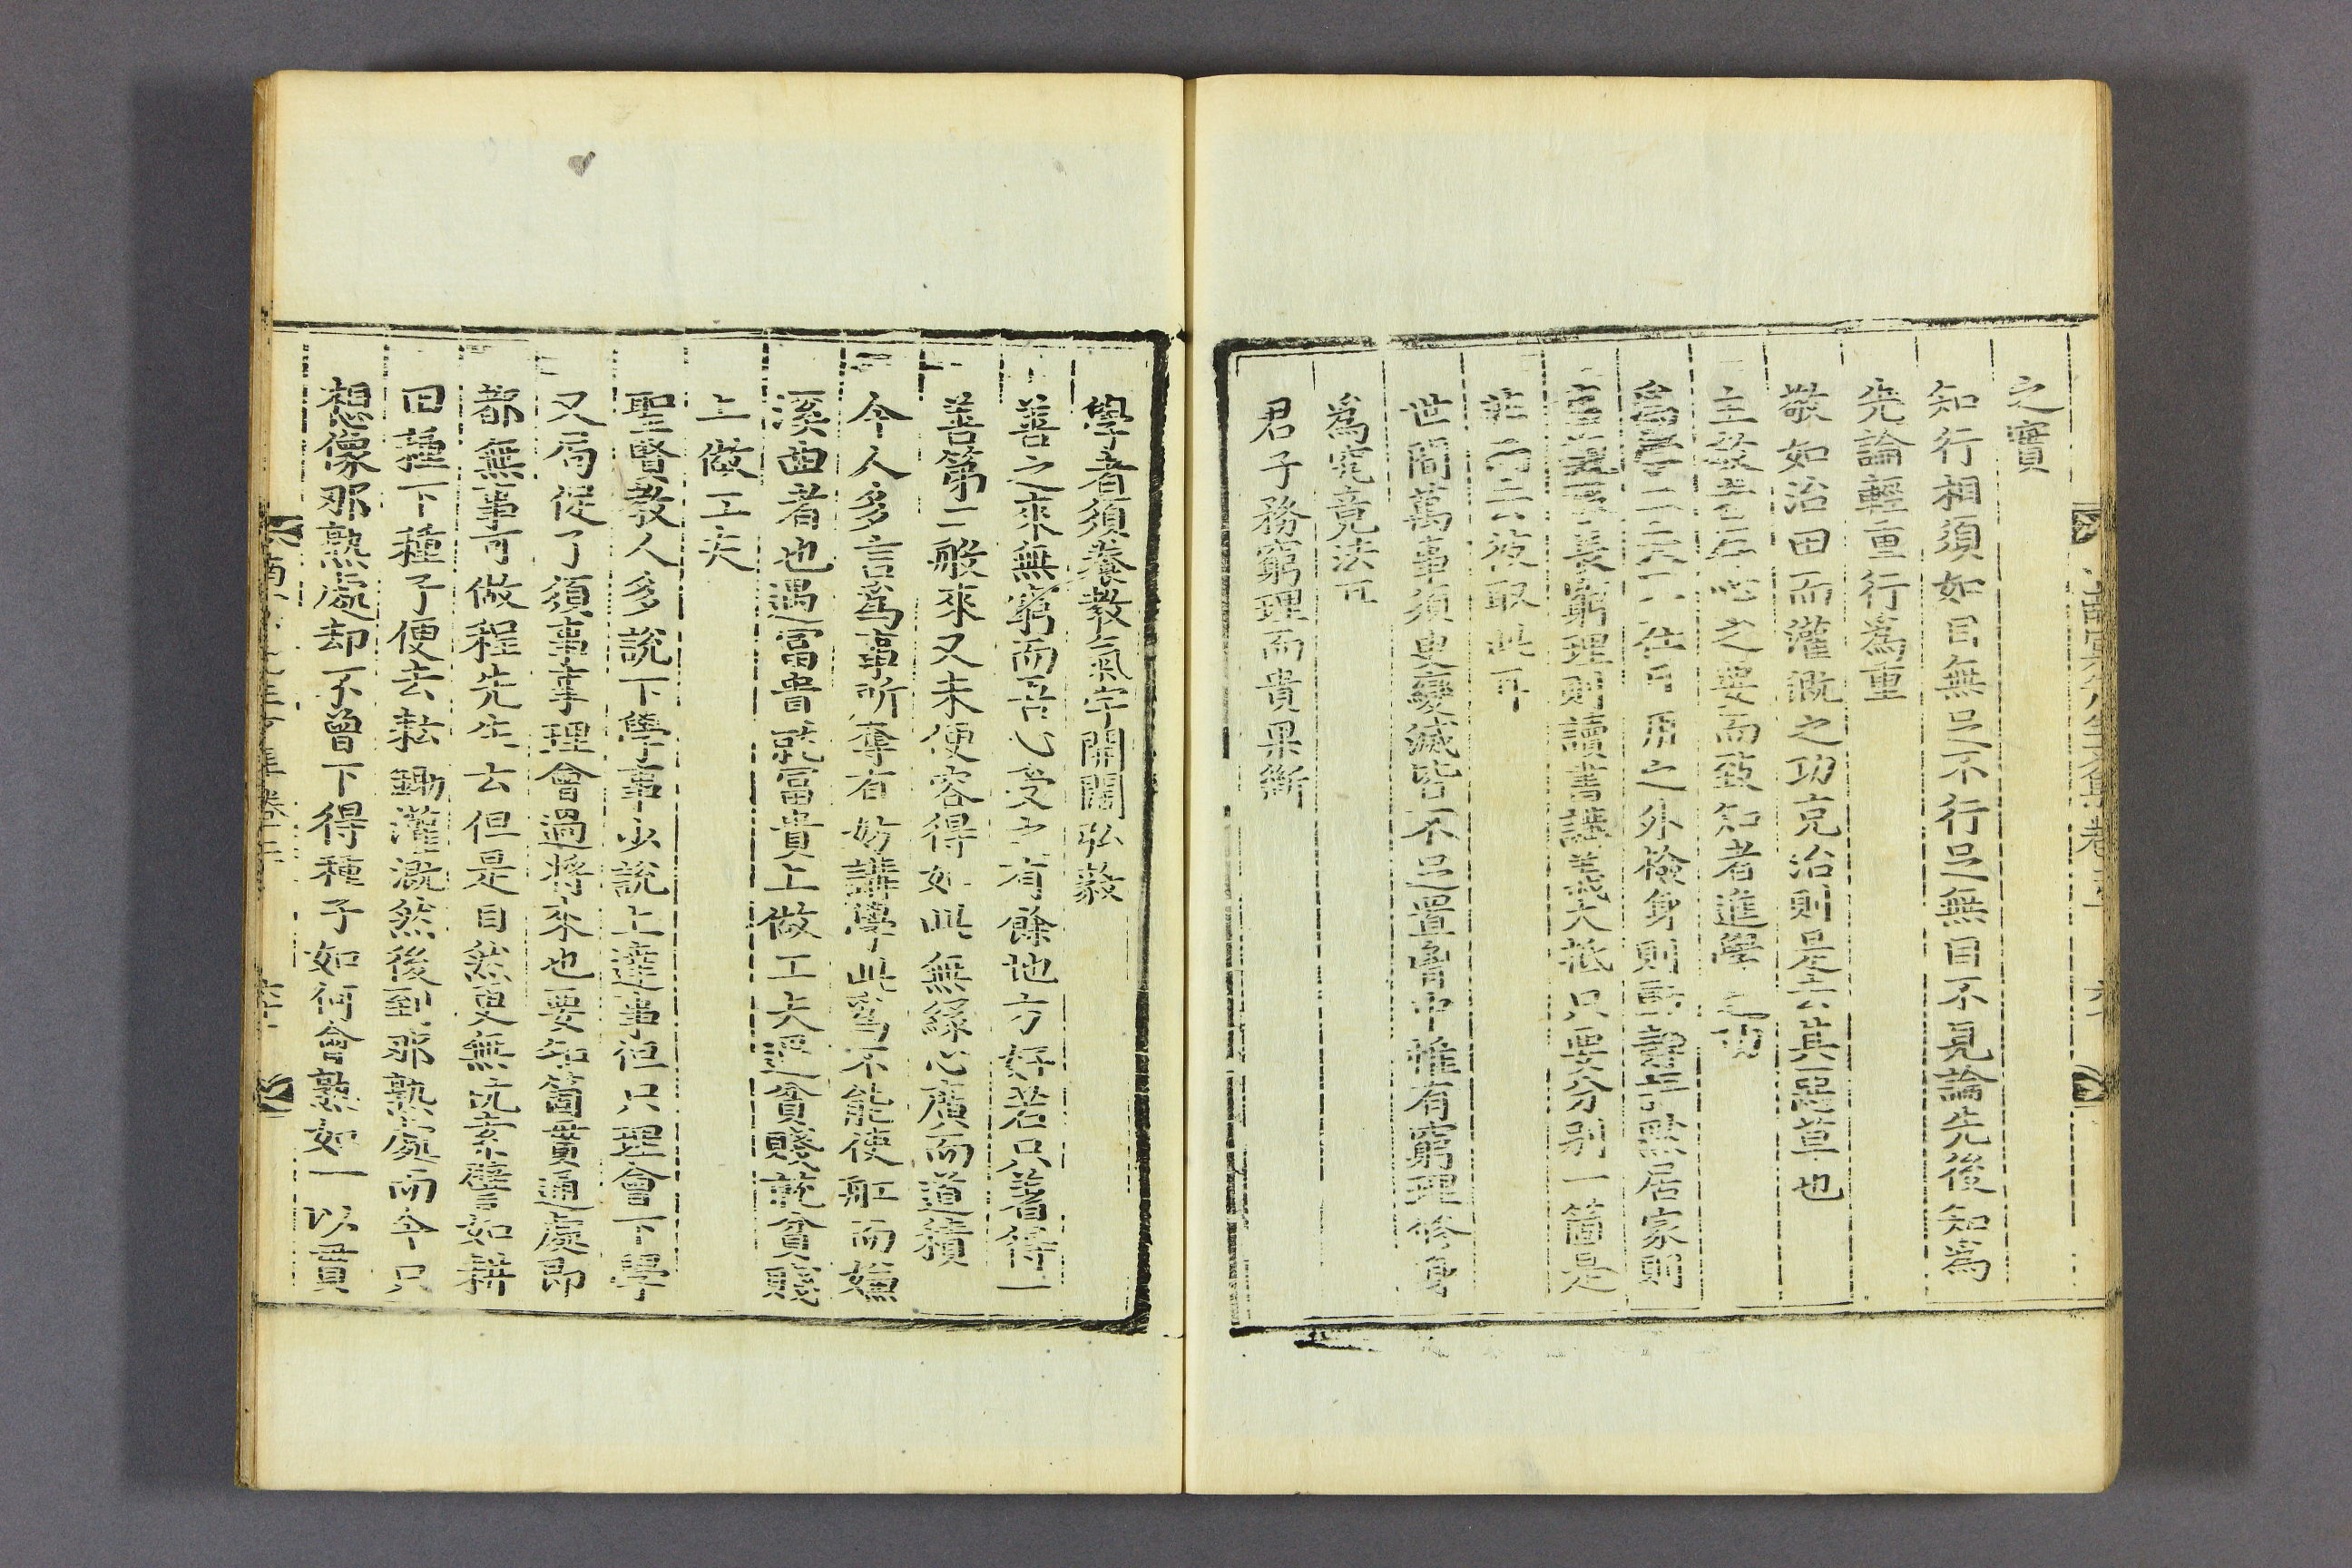 之實
知行相須如目無足不行足無目不見論先後知為
先論輕重行為重
敬如治田而灌溉之功克治則是去其惡草也
主敬者存心之要而致知者進學之功
為學之實固在日用之外檢身則動靜語默居家則
事親事長窮理則讀書講義大抵只要分別一箇是
非而去彼取此耳
世間萬事須臾變滅皆不足置胷中惟有窮理修身
為究竟法耳
君子務窮理而貴果斷
學者須養教氣宇開闊弘毅
善之來無窮而吾心受之有餘地方好若只著得一
善第二般來又未便容得如此無緣心廣而道積
今人多言為事所奪有妨講學此為不能使舡而嫌
溪曲者也遇富貴就富貴上做工夫遇貧賤就貧賤
上做工夫
聖賢教人多說下學事少說上達事但只理會下學
又局促了須事事理會過將來也要知箇貫通處即
都無事可做程先生云但是自然更無玩索譬如耕
田種下種子便去耘鋤灌溉然後到那熟處而今只
想像那熟處却不曾下得種子如何會熟如一以貫